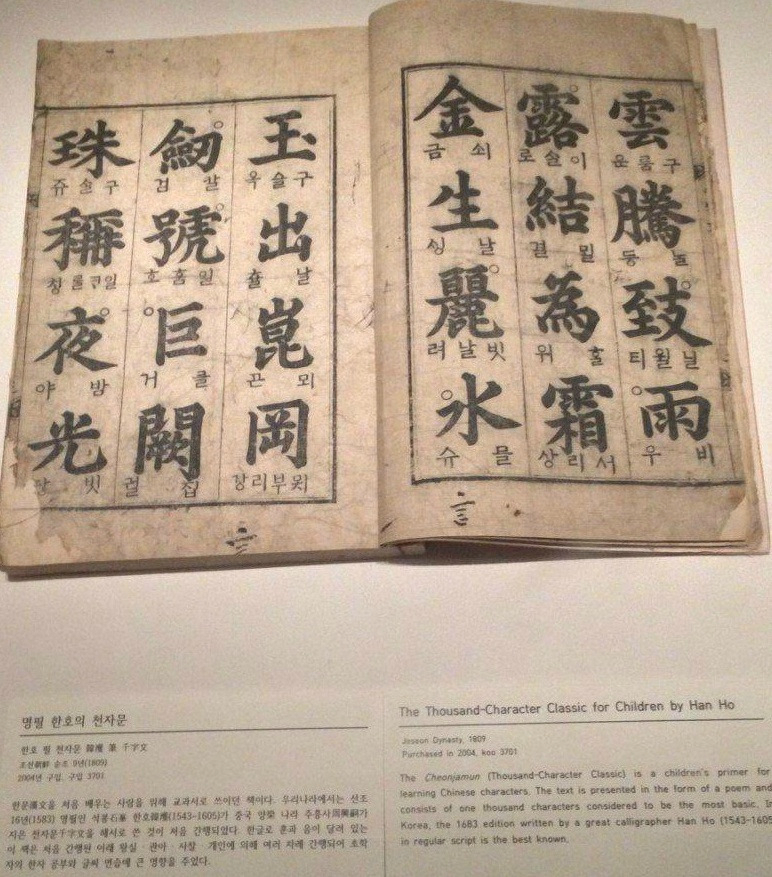 雲
구룸운
騰
致
닐윌티
雨
비우
露
이슬로
結
結
為
위
霜
서리상
金
쇠금
生
날
麗
빗날려
水
믈슈
玉
구슬옥
出
날츌
崑
뫼곤
岡
묏부리강
劒
갈검
號
일홈호
巨
클거
闕
집궐
珠
구슬쥬
稱
夜
밤야
光
빗광
명필 한호의 천자문
한호 필 천자문 韓濩 筆 千字文
조선朝鮮 순조 9년(1809)
2004년 구입, 구입 3701
한문漢文을 처음 배우는 사람을 위해 교과서로 쓰이던 책이다. 우리나라에서는 선조
16년(1583) 명필인 석봉石峯 한호韓濩(1543-1605)가 중국 양梁 나라 주흥사周興嗣가
지은 천자문千字文을 해서로 쓴 것이 처음 간행되었다. 한글로 훈과 음이 달려 있는
이 책은 처음 간행된 이래 왕실·관아·사찰·개인에 의해 여러 차례 간행되어 초학
자의 한자 공부와 글씨 연습에 큰 영향을 주었다.
The Thousand-Character Classic for Children by Han Ho
Joseon Dynasty, 1809
Purchased in 2004, koo 3701
The Cheonjamun (Thousand-Character Classic) is a children's primer for
learning Chinese characters. The text is presented in the form of a poem and
consists of one thousand characters considered to be the most basic. In
Korea, the 1683 edition written by a great calligrapher Han Ho (1543-1605)
in regular script is the best known.